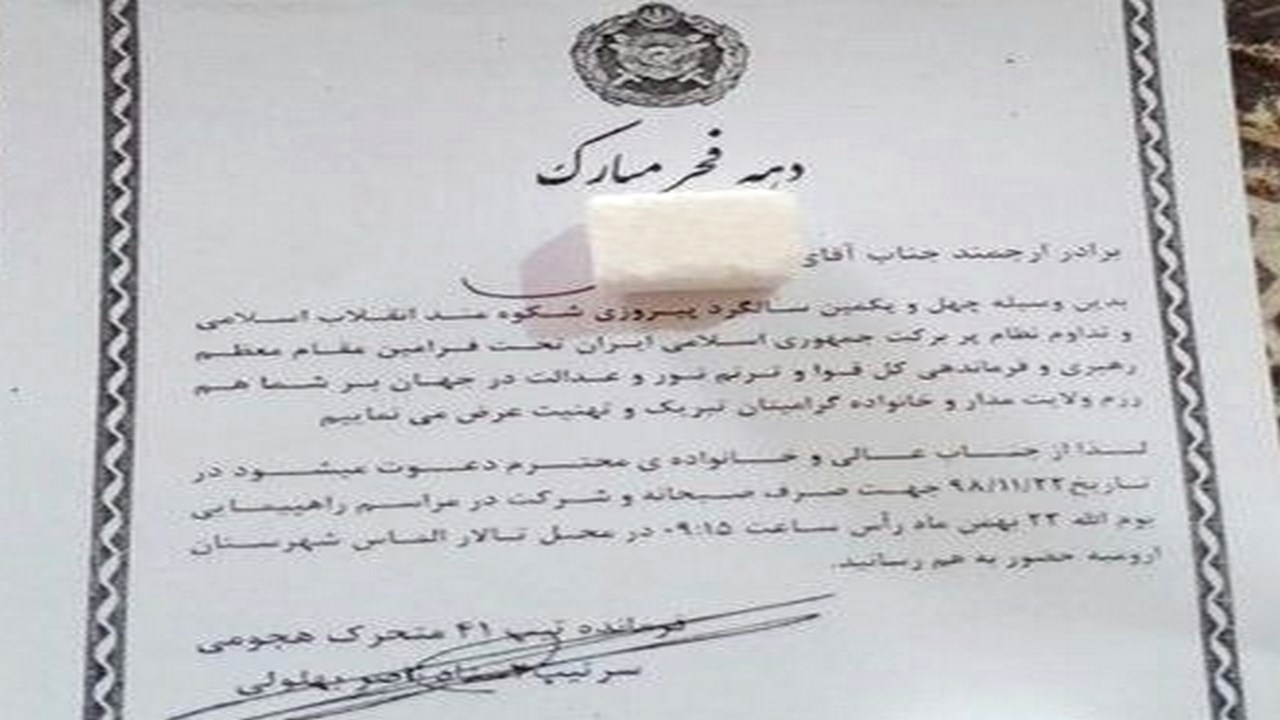 دهه فجر مبارک
برادر ارجمند جناب آقای
بدین وسیله چهل و یکمین سالگرد پیروزی شکوه مند انقلاب اسلامی
و تداوم نظام پر برکت جمهوری اسلامی ایران تحت فرامین مقام معظم
رهبری و فرماندهی کل قوا و ترنم نور و عدالت در جهان بر شما هم
رزم ولایت مدار و خانواده گرامیتان تبریک و تهنیت عرض می نماییم
لذا از جناب عالی و خانواده ی محترم دعوت میشود در
تاریخ ۹۸/۱۱/۲۲ جهت صرف صبحانه و شرکت در مراسم راهپیمایی
یوم الله ۲۲ بهمن ماه رأس ساعت ۰۹:۱۵ در محل تالار الماس شهرستان
ارومیه حضور به هم رسانید.
فرمانده تیپ ۴۱ متحرک هجومی
سرتیپ بهلولی